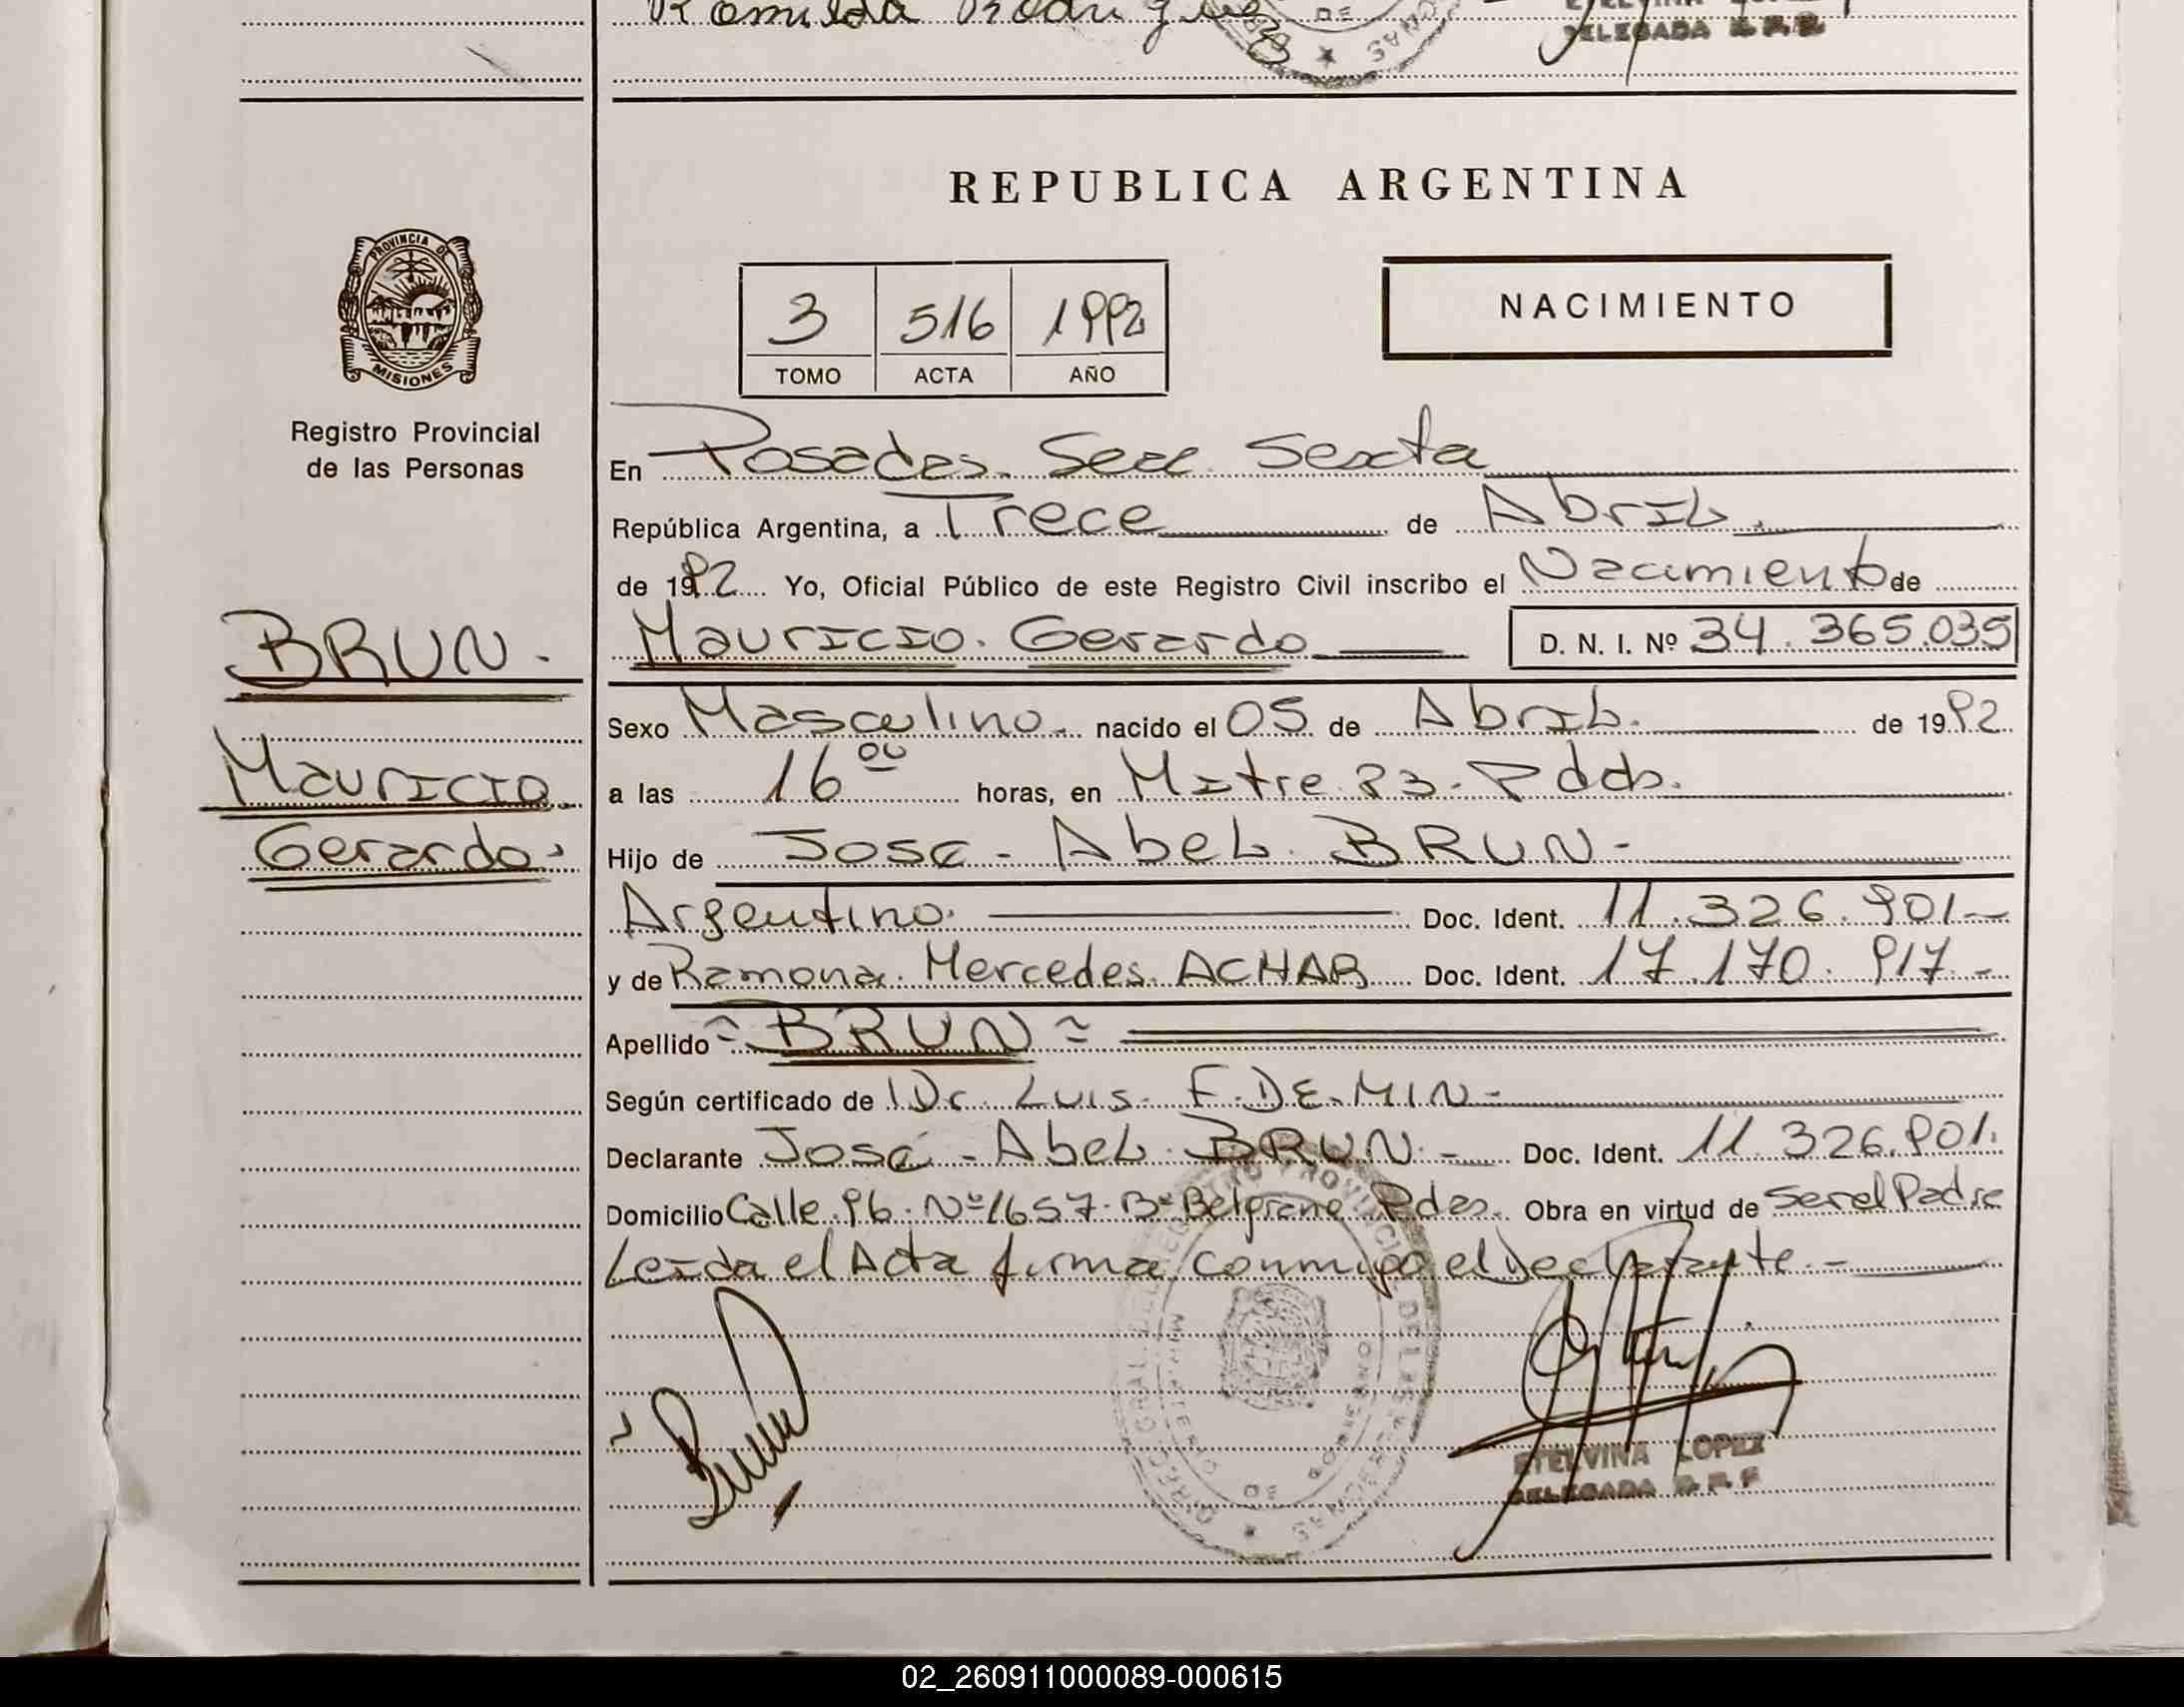 Romilda Rodriguez
DE
DELEGADA R.P.P.
PROVINCIA DE
MISIONES
Registro Provincial
de las Personas
BRUN.
Mauricio.
Gerardo.
REPUBLICA ARGENTINA
3 516 1992
TOMO ACTA AÑO
NACIMIENTO
En Posadas. Secc. Sexta
República Argentina, a Trece de Abril.
de 1992 Yo, Oficial Público de este Registro Civil inscribo el Nacimiento de
Mauricio. Gerardo D. N. I. Nº 34.365.035
Sexo Masculino. nacido el 05 de Abril. de 1992
a las 16 00 horas, en Mitre 93. Pdas.
Hijo de José - Abel. BRUN -
Argentino. Doc. Ident. 11.326.901-
y de Ramona. Mercedes. ACHAR Doc. Ident. 17.170.917.-
Apellido = BRUN =
Según certificado de Dr. Luis. F. DE. MIN -
Declarante José - Abel. BRUN. - Doc. Ident. 11.326.901.
Domicilio Calle 96. Nº 1657. Bº Belgrano Pdas. Obra en virtud de Ser el Padre
Leida el Acta firma conmigo el Declarante. -
Brun
DIREC. GRAL. DEL REGISTRO PROVINCIAL DE LAS PERSONAS
MINISTERIO DE GOBIERNO
ETELVINA LOPEZ
DELEGADA R. P. P.
02_260911000089-000615